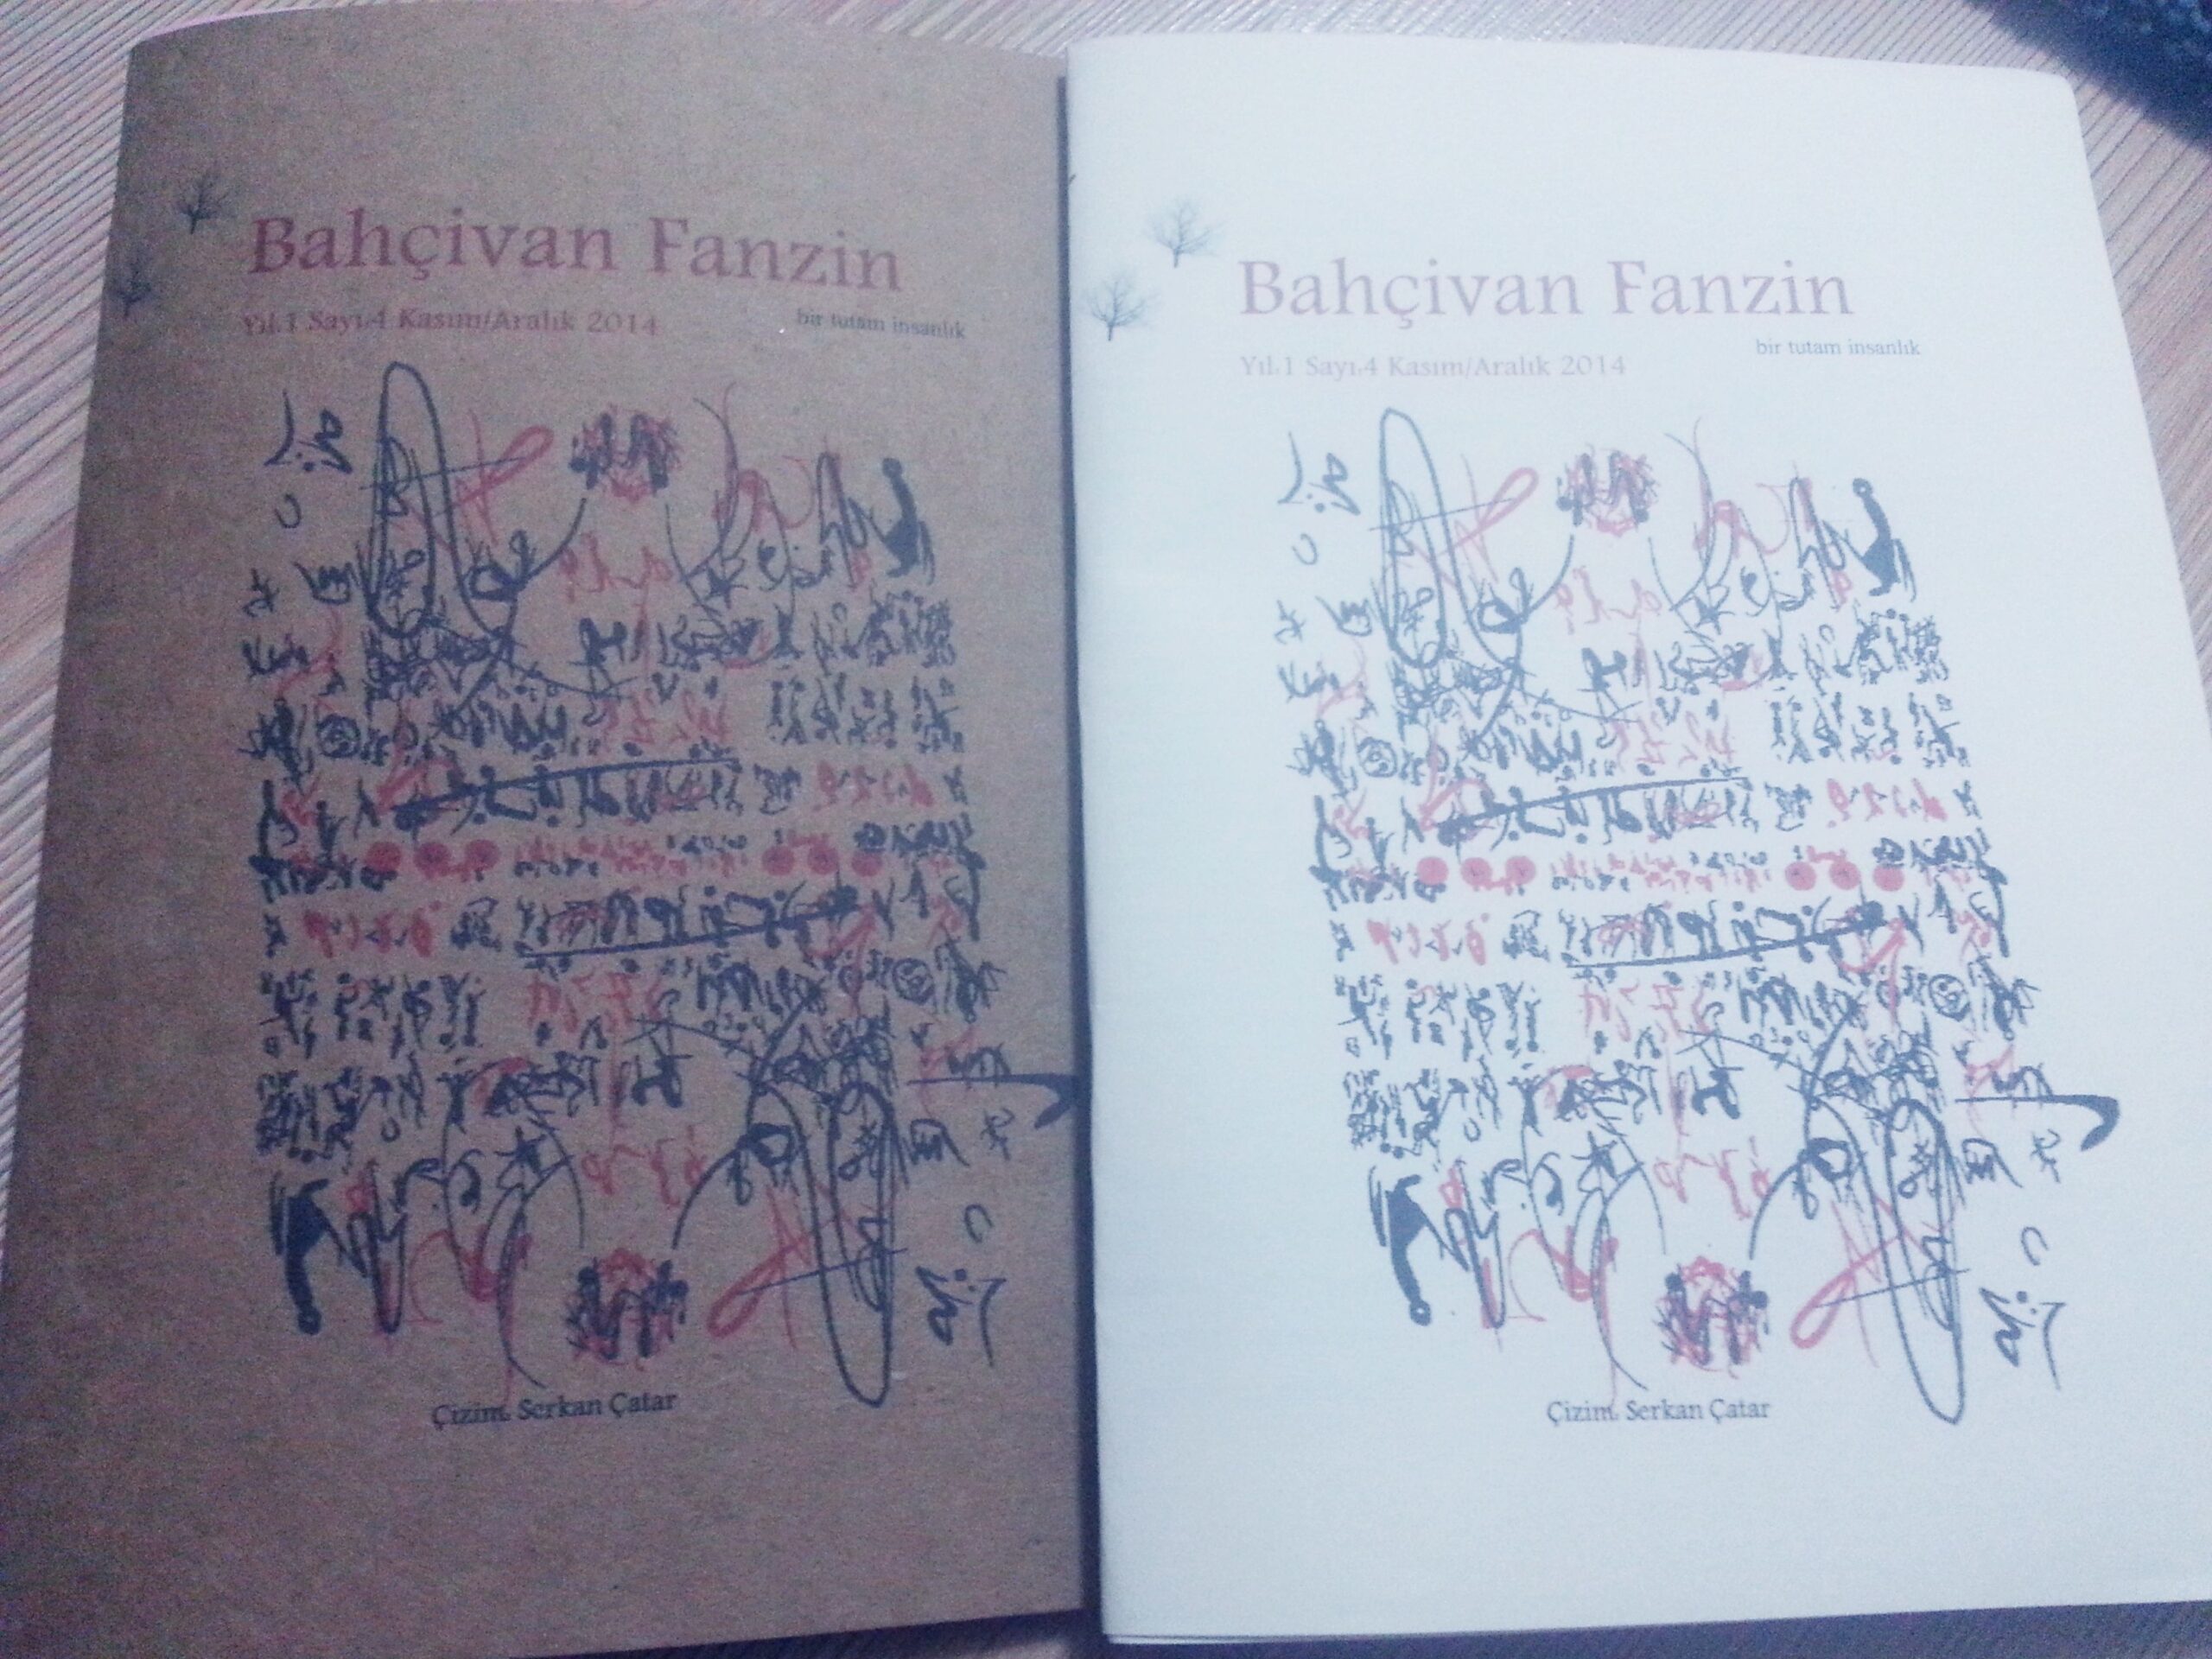 Bahçivan Fanzin
Yıl.1 Sayı.4 Kasım/Aralık 2014
bir tutam insanlık
Çizim. Serkan Çatar
Bahçivan Fanzin
bir tutam insanlık
Yıl.1 Sayı.4 Kasım/Aralık 2014
Çizim. Serkan Çatar